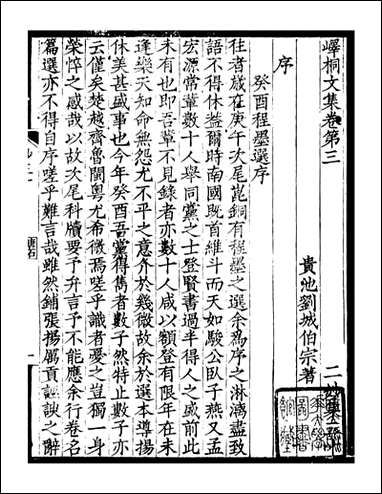 嶧桐文集卷第三
貴池劉城伯宗著
序
癸酉程墨選序
往者歲在庚午次尾崑銅有程墨之選余為序之淋漓盡致
語不得休葢爾時南國旣首維斗而天如駿公臥子燕又孟
宏源常輩數十人舉同黨之士登賢書過半得人之盛前此
未有也即吾輩不見錄者亦數十人咸以額登有限年在未
逢樂天知命無怨尤不平之意介於幾微故余於選本導揚
休美甚盛事也今年癸酉吾黨得雋者數子然特止數子亦
云僅矣楚越齊魯閩粤尤希微焉嗟乎識者憂之豈獨一身
榮悴之感哉以故次尾科牘要予弁言予不能應余行卷名
篇選亦不得自序嗟乎難言哉雖然鋪張揚厲貢諛諛之辭